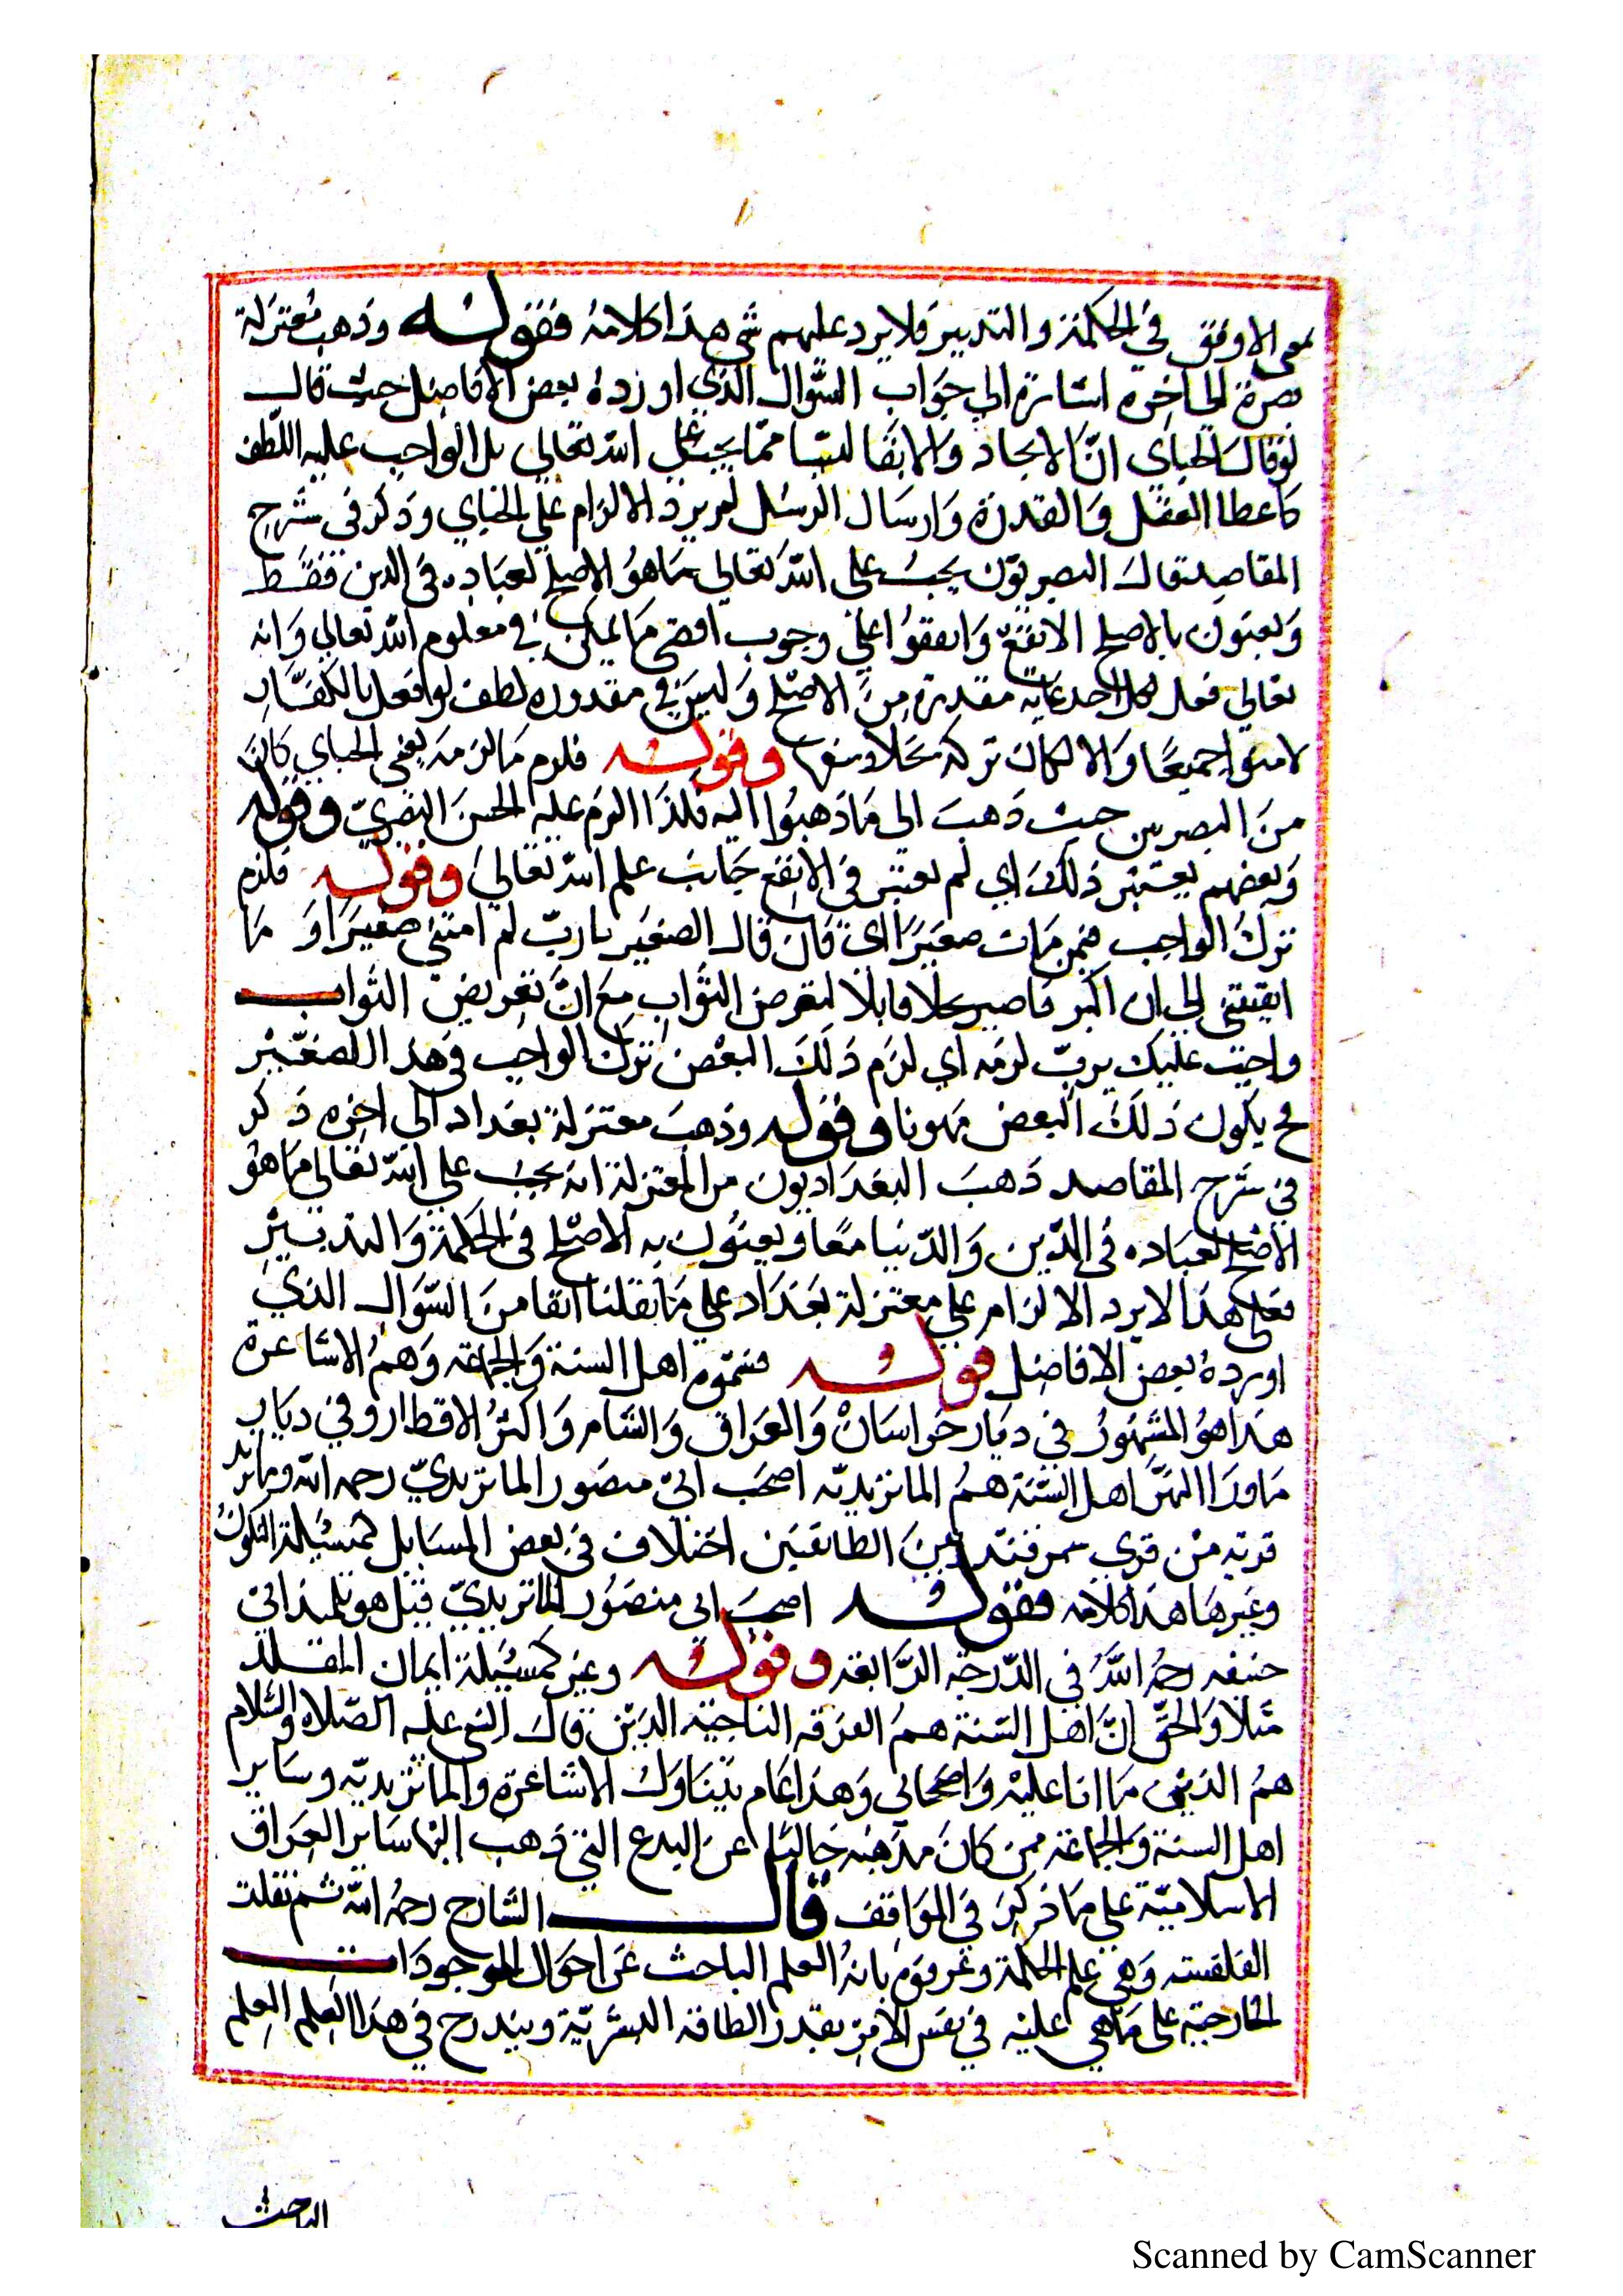 بمعنى الاوفق في الحكمة والتدبير فلا يرد عليهم شي هذا كلامه فقوله وذهب معتزلة
بصرة الى اخره اشارة الي جواب السّوال الذي اورده بعض الافاضل حيث قال
لو قال الجباي انّ الايجاد والابقا ليسا ممّا يجب علي الله تعالي بل الواجب عليه اللّطف
كاعطا العقل والقدرة وارسال الرسل لم يرد الالزام علي الجباي وذكر في شرح
المقاصد قال البصريّون يجب على الله تعالي ما هو الاصلح لعباده في الدين فقط
ويعنون بالاصلح الانفع واتفقوا علي وجوب اقصى ما يمكن في معلوم الله تعالي وانه
تعالي فعل لكل احد غاية مقدرة من الاصلح وليس في مقدوره لطف لو افعل بالكفّار
لامنوا جميعًا والا لكان تركه بخلا وسفها وقوله فلزم ما لزمه يعني الجباي كان
من البصريين حيث ذهب الي ما ذهبوا اليه فلذا الزم عليه الحسن البصريّ وقوله
وبعضهم يعتبر ذلك اي لم يعتبر في الانفع جانب علم الله تعالي وقوله فلزم
ترك الواجب فيمن مات صغيرا اي فان قال الصغير يا ربّ لم امتني صغيرا وما
ابقيتني الي ان اكبر فاصير قابلا لتعرض الثواب مع انّ تعريض الثواب
واجب عليك يربّ لزمه اي لزم ذلك البعض ترك الواجب في هذا الصغير
ح يكون ذلك البعض وقوله وذهب معتزلة بغداد الى اخره ذكر
في شرح المقاصد ذهب البغداديون من المعتزلة انه يجب علي الله تعالي ما هو
الاصلح لعباده في الدّين والدّنيا معًا ويعنون به الاصلح في الحكمة والتدبير
فعلى هذا لا يرد الالزام علي معتزلة بغداد علي ما نقلنا انفا من السّوال الذي
اورده بعض الافاضل قوله فسمّوا اهل السنة والجماعة وهم الاشاعرة
هذا هو المشهور في ديار خراسان والعراق والشام واكثر الاقطار وفي ديار
ماورا النهر اهل السّنة هم الماتريديّه اصحب ابي منصور الماتريديّ رحمه الله وماتريد
قرية من قري سمرقند وبين الطائفتين اختلاف في بعض المسايل كمسيلة التكون
وغيرها هذا كلامه فقوله اصحب ابي منصور الماتريديّ قيل هو تلميذ ابي
حنيفه رحمه الله في الدّرجة الرّابعة وقوله وغير كمسيلة ايمان المقلد
مثلا والحق انّ اهل السّنة هم الفرقه الناجيّة الذين قال النبي عليه الصّلاة والسّلام
هم الذين ما انا عليه واصحابي وهذا عام يتناول الاشاعرة والماتريديّه وساير
اهل السنة والجماعة ممن كان مذهبه خاليا عن البدع التي ذهب اليها ساير العراق
الاسلاميّة على ما ذكر في المواقف قال الشارح رحمه الله ثم نقلت
الفلسفة وهي علم الحكمة وعرفوه بانه العلم الباحث عن احوال الموجودات
الخارجيّة على ما هي عليه في نفس الامر بقدر الطاقة البشريّة ويندرج في هذا العلم العلم
الباحث
Scanned by CamScanner